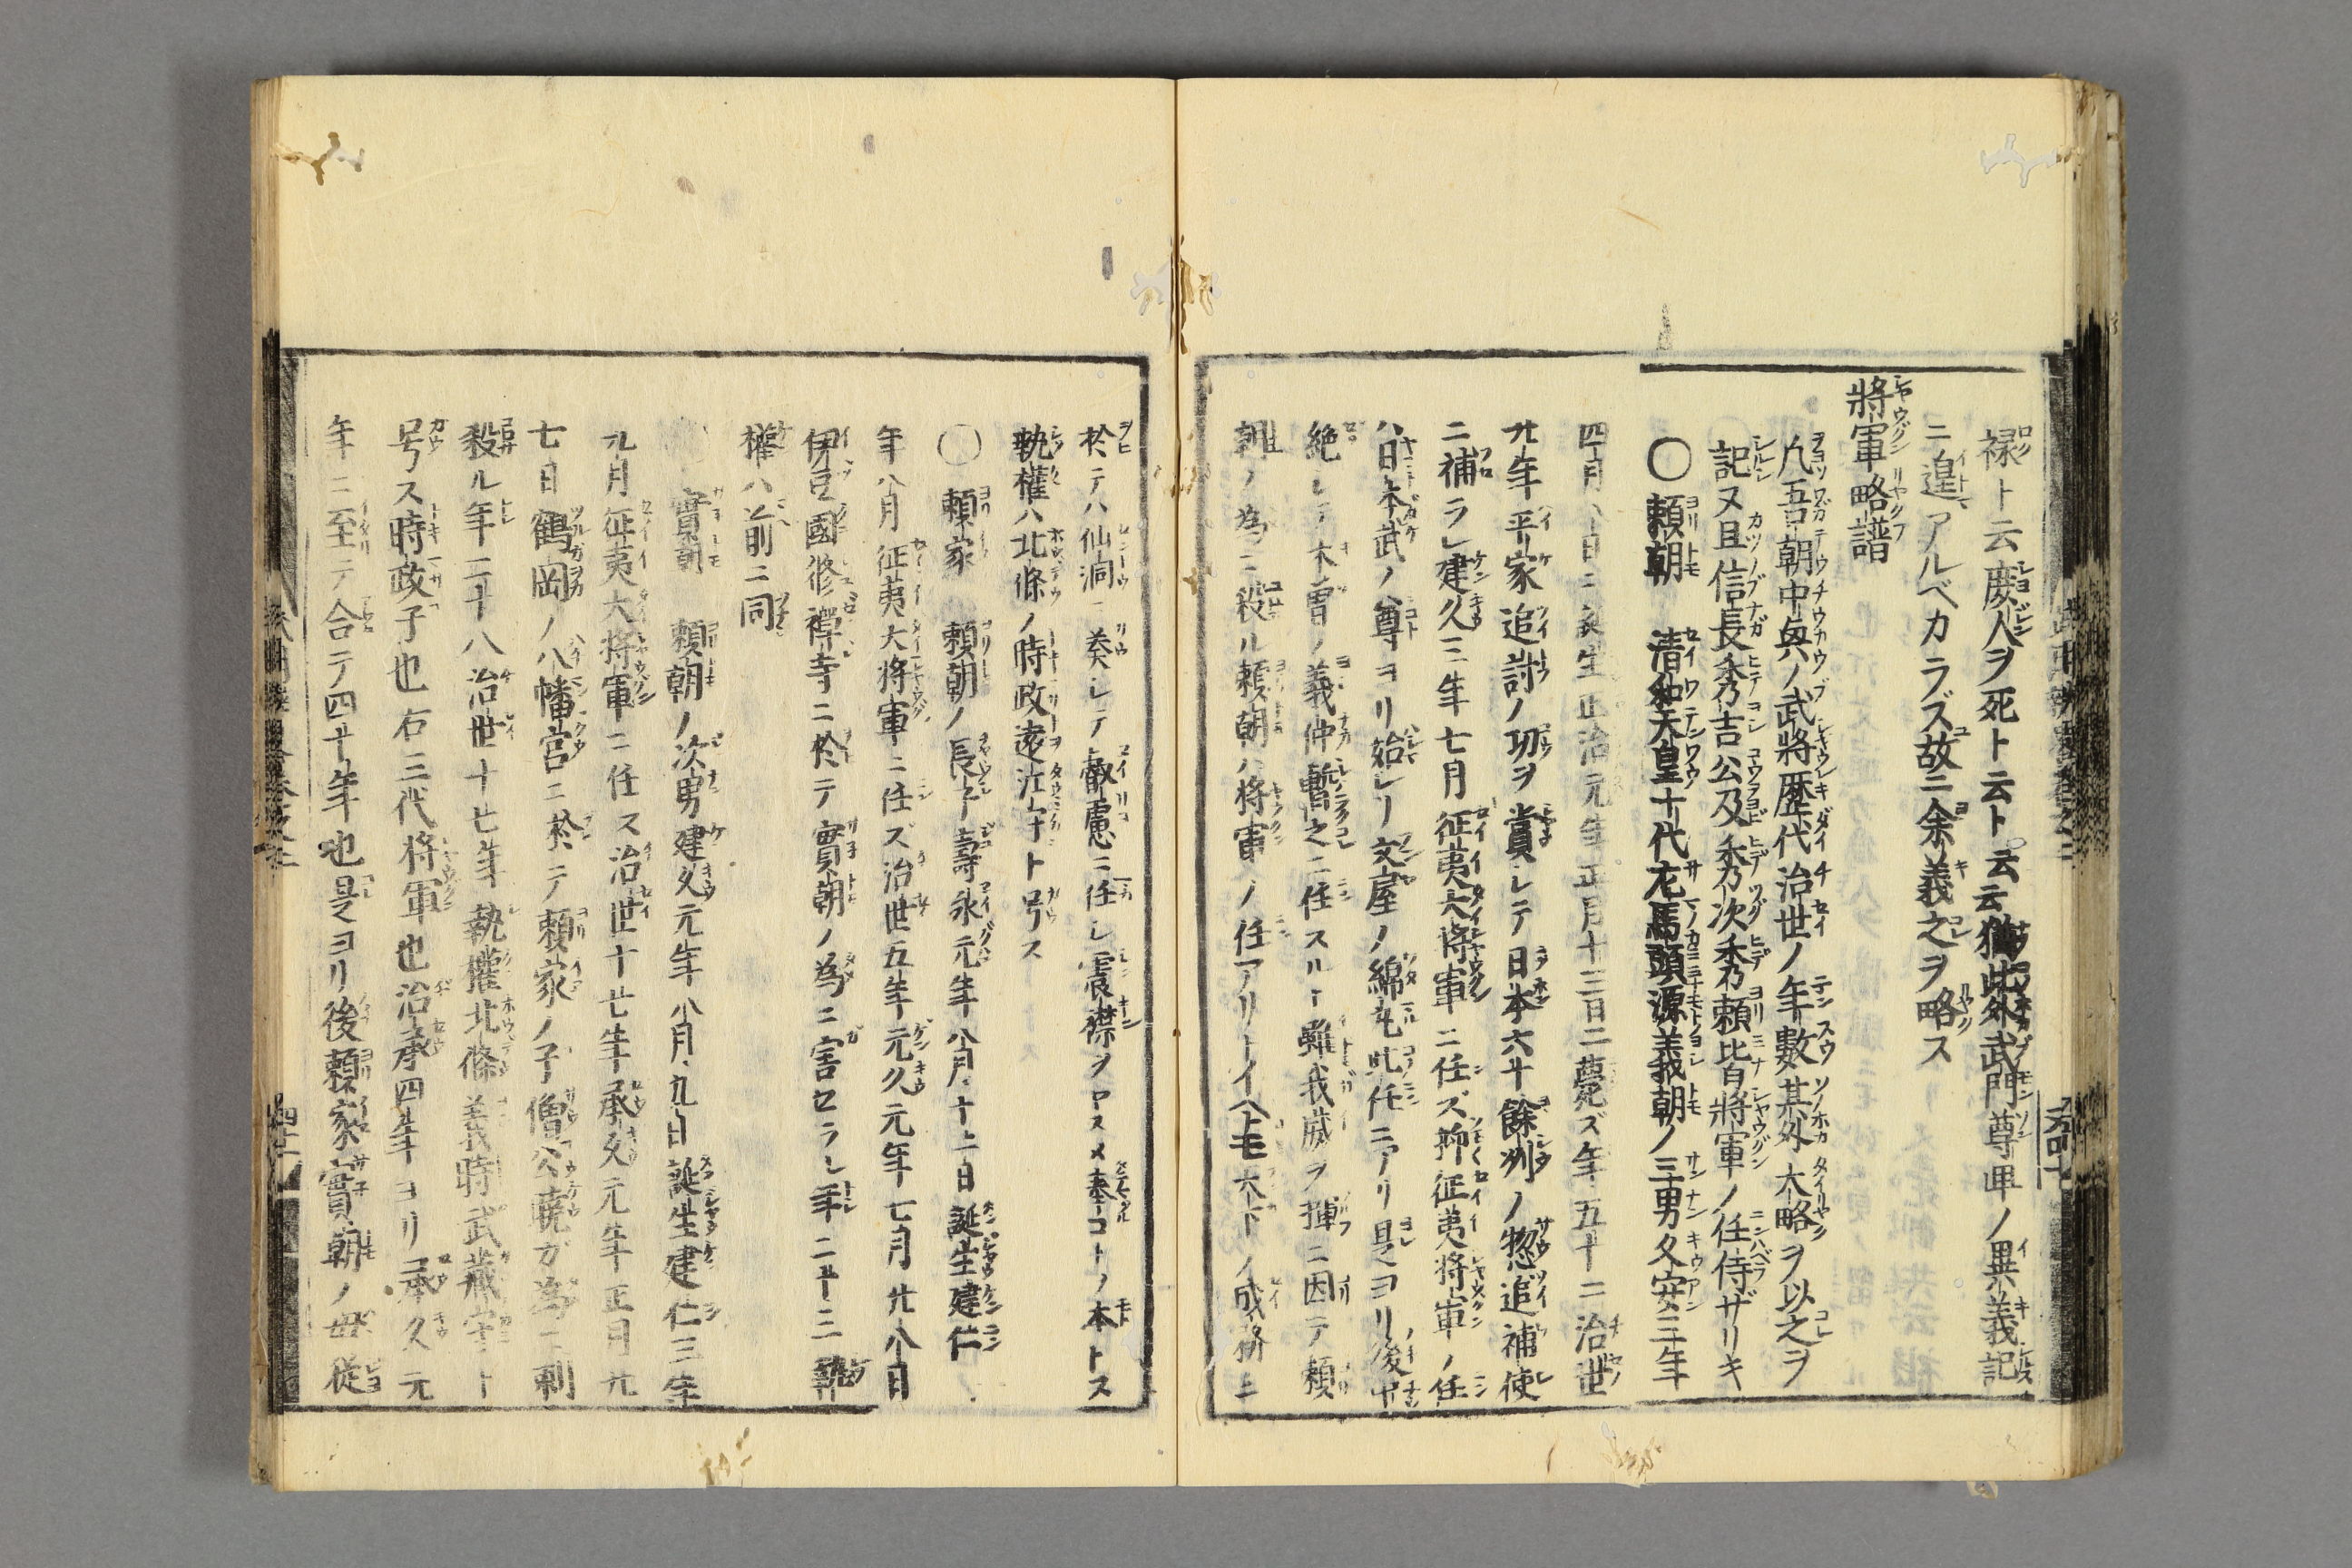 禄ト云庶人ヲ死ト云ト云云猶此外武門尊卑ノ異義記
ニ遑アルベカラズ故ニ余義之ヲ略ス
將軍略譜
凡吾朝中興ノ武將歴代治世ノ年數其外大略ヲ以之ヲ
記又且信長秀吉公及秀次秀頼皆將軍ノ任侍ザリキ
〇頼朝 清和天皇十代左馬頭源義朝ノ三男久安三年
四月八日ニ誕生正治元年正月十三日ニ薨ズ年五十二治世
廿年平家追討ノ功ヲ賞シテ日本六十餘州ノ惣追補使
ニ補ラレ建久三年七月征夷大將軍ニ任ズ抑征夷將軍ノ任
ハ日本武ノ尊ヨリ始レリ文屋ノ綿丸此任ニアリ是ヨリ後中
絶シテ木曽ノ義仲暫之ニ任スルト雖我威ヲ揮ニ因テ頼
朝ノ為ニ殺ル頼朝ハ将軍ノ任アリトイヘトモ天下ノ成務ニ
於テハ仙洞ニ奏シテ叡慮ニ任シ震襟ヲヤスメ奉コトヲ本トス
執權ハ北條ノ時政遠江守ト号ス
〇頼家 頼朝ノ長子壽永元年八月十二日誕生建仁二
年八月征夷大将軍ニ任ズ治世五年元久元年七月廿八日
伊豆國修禅寺ニ於テ實朝ノ為ニ害セラレ年二十三執
權ハ前ニ同
實朝 頼朝ノ次男建久元年八月九日誕生建仁三年
九月征夷大将軍ニ任ス治世十七年承久元年正月廿
七日鶴岡ノ八幡宮ニ於テ頼家ノ子僧公暁ガ為ニ刺
殺ル年二十八治世十七年執權北條義時武藏守ト
号ス時政子也右三代将軍也治承四年ヨリ承久元
年ニ至テ合テ四十年也是ヨリ後頼家實朝ノ母従